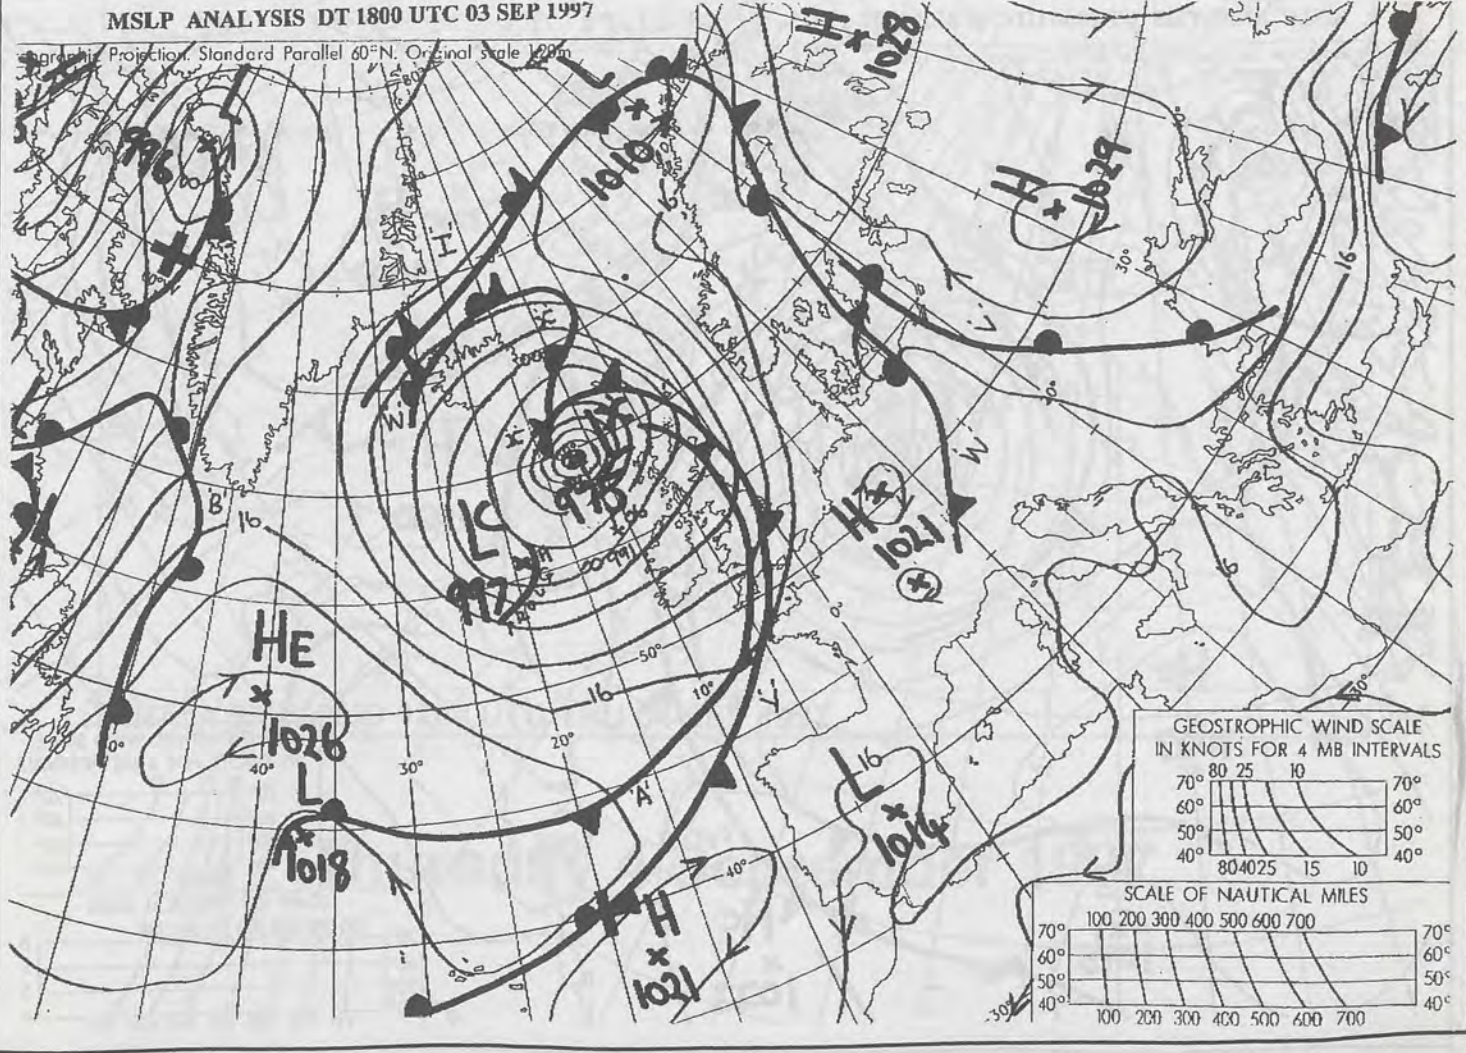 MSLP ANALYSIS DT 1800 UTC 03 SEP 1997
Projection. Standard Parallel 60°N. Original scale 1:20m
80°
H
1028
996
1010
H
1029
30°
16
'W'
'X'
'X'
'W'
'B'
16
975
L
997
H
1021
50°
16
10°
20°
0°
HE
1026
L
1018
40°
30°
'A'
'Y'
L
16
1014
40°
H
1021
30°
GEOSTROPHIC WIND SCALE
IN KNOTS FOR 4 MB INTERVALS
80 25 10
70° 70°
60° 60°
50° 50°
40° 40°
804025 15 10
SCALE OF NAUTICAL MILES
100 200 300 400 500 600 700
70° 70°
60° 60°
50° 50°
40° 40°
100 200 300 400 500 600 700